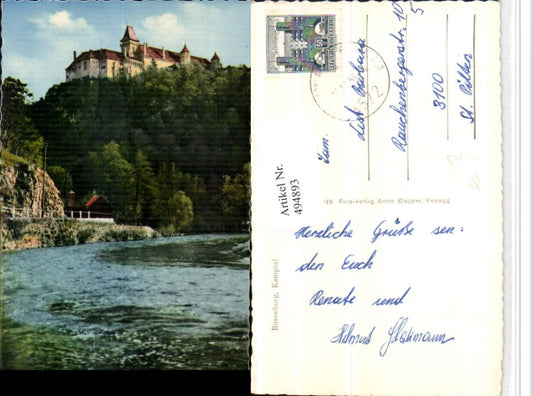 Fam.
List Barbara
Rauchenbergerstr. 10
5
3100
St. Pölten
Artikel Nr.
494893
195 Foto-Verlag Anton Klapper, Kamegg
Rosenburg, Kamptal
Herzliche Grüße sen-
den Euch
Renate und
Helmut